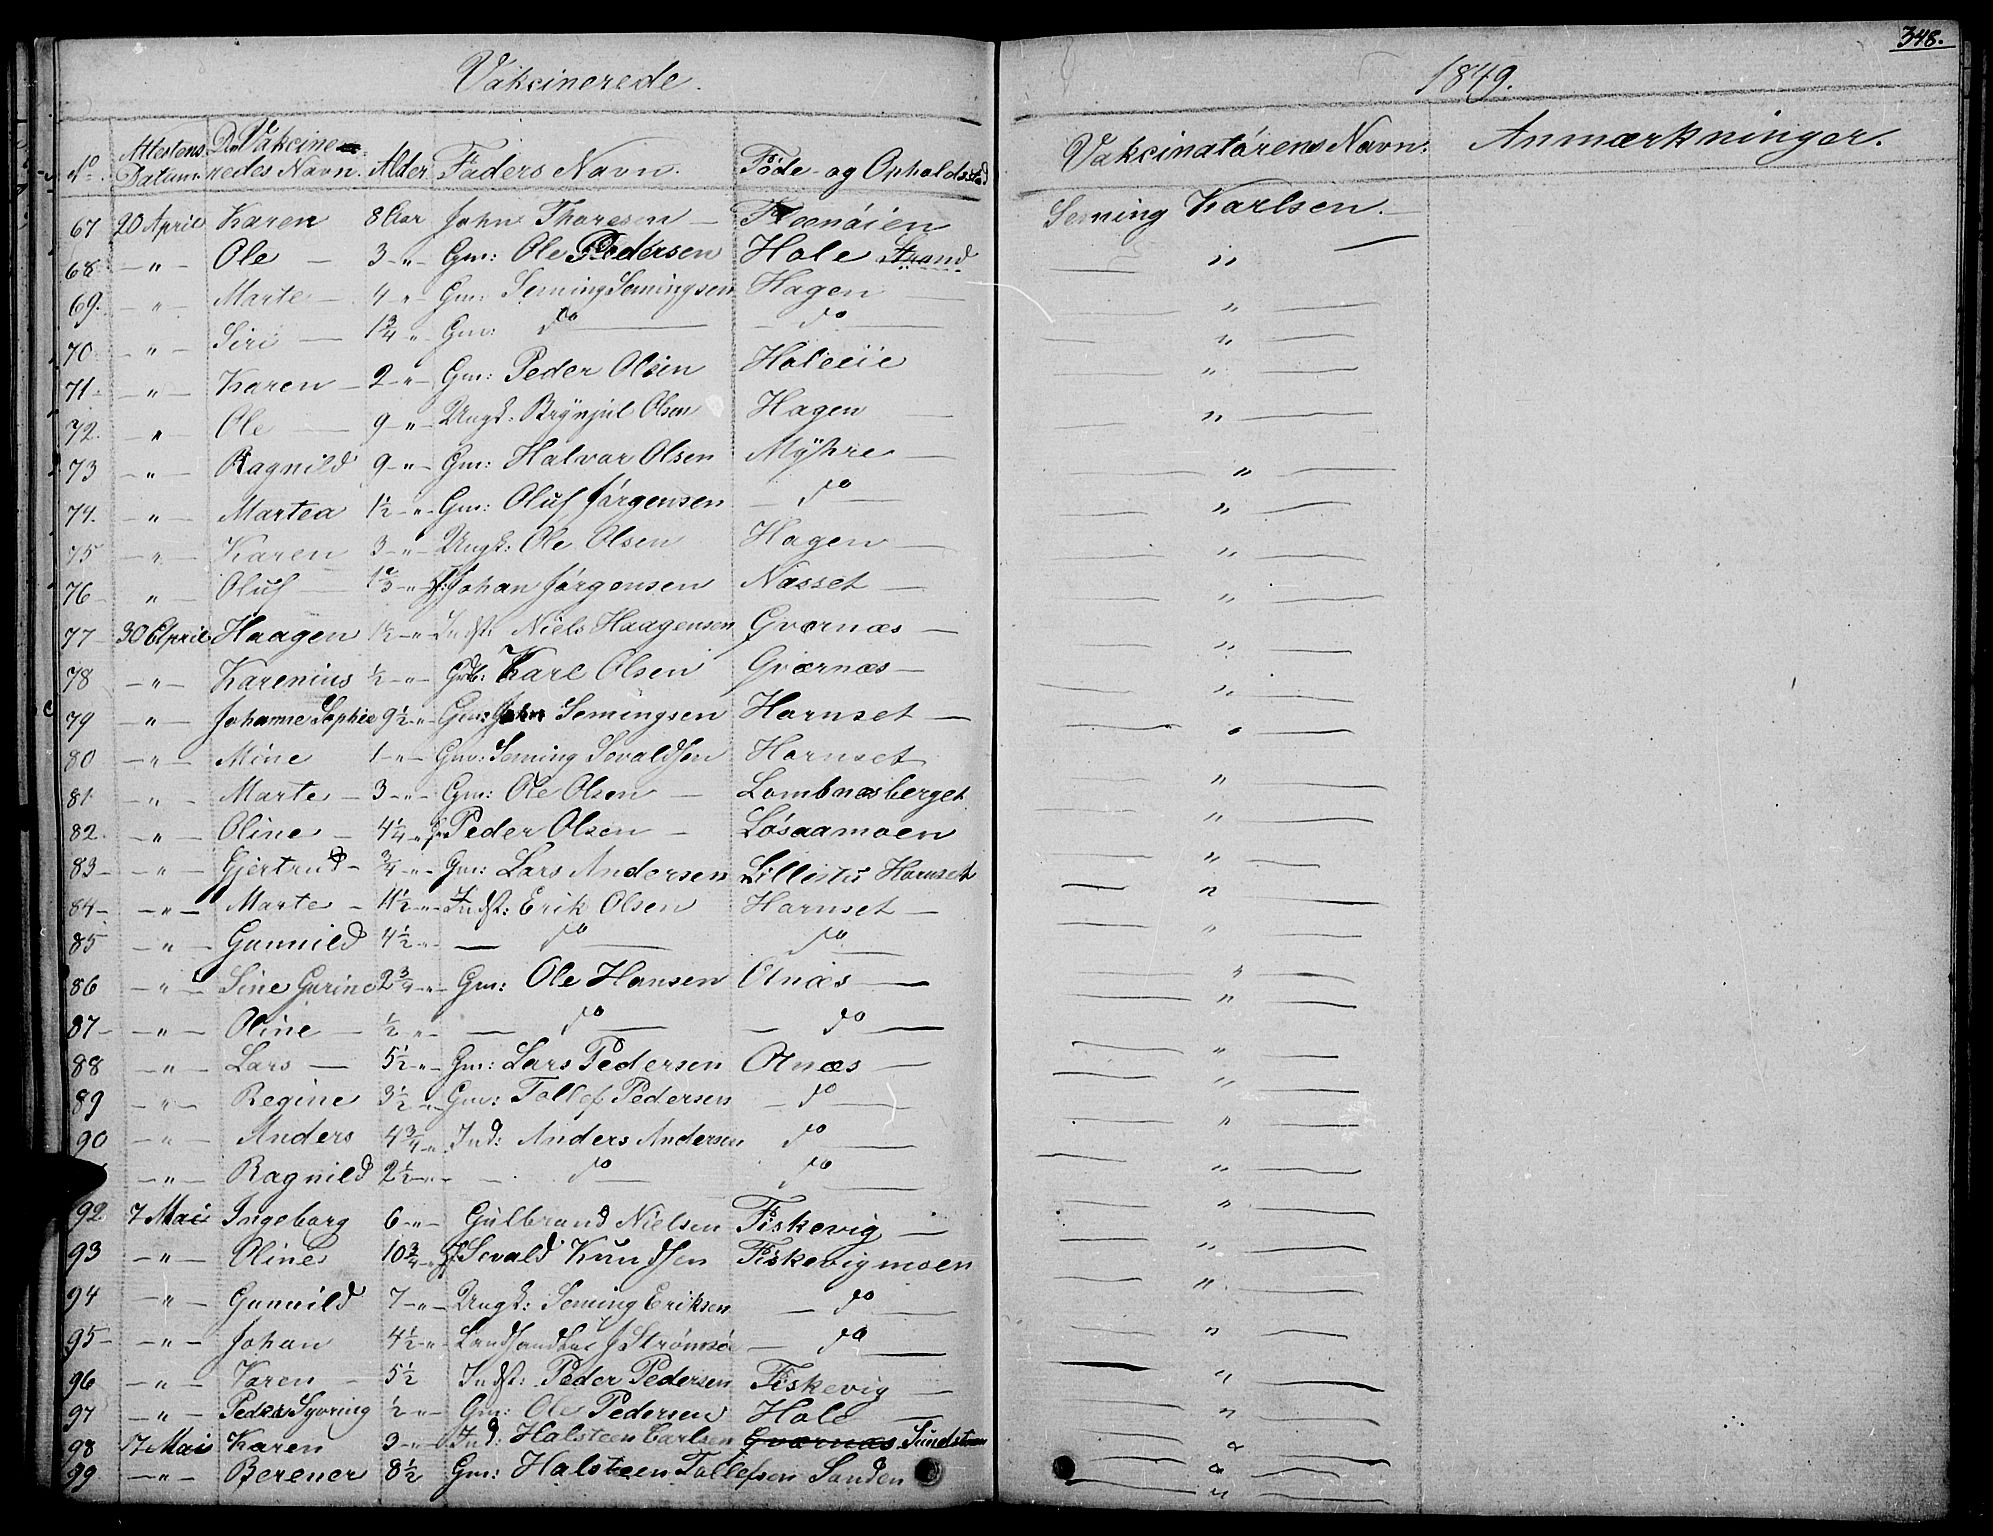 348.
Vakcinerede.
1849.
No. Attestens Datum. De Vakcineredes Navn. Alder. Faders Navn. Føde- og Opholdssted Vakcinatørens Navn. Anmærkninger.
67 20 April Karen 8 Aar John Thoresen — Seming Karlsen. —
68 —"— Ole — 3 —"— Gm: Ole Pedersen Hole Strand — " —
69. —"— Marte — 4 " — Gm: Seming Semingsen Hagen — — " —
70 —"— Siri — 1 3/4 " Gm: do — — do — — " —
71 —"— Karen — 2 —"— Gm: Peder Olsen Holeeie — " —
72. " Ole — 9 —"— Ungk: Brynjul Olsen Hagen — — " —
73 —"— Ragnild 9 —"— Gm: Halvor Olsen Myhre — — " —
74. —"— Martea 1 1/2 —"— Gm: Oluf Jørgensen — do — — " —
75 —"— Karen 3 —"— Ungk: Ole Olsen Hagen — — " —
76 —"— Oluf — 1 2/3 —"— Johan Jørgensen Næsset — — " —
77 30 April Haagen 1 1/2 —"— Indst: Niels Haagensen Gvernæs — — " —
78 —"— Karenius 1/2 —"— Gdb: Karl Olsen Gværnæs — — " —
79 —"— Johanne Sophie 9 1/2 —"— Gm: John Semingsen Hornset — — " —
80 —"— Mine 1 —"— Gm: Seming Sevaldsen Hornset — " —
81 —"— Marte — 3 —"— Gm: Ole Olsen — Lombnæsberget — " —
82. —"— Oline — 4 1/4 —"— Peder Olsen — Løsaamoen — " —
83 —"— Gjertrud — 3/4 —"— Gm: Lars Andersen Lillestu Hornset — " —
84 —"— Marte — 11 1/2 —"— Indst: Erik Olsen Hornset — — " —
85 —"— Gunnild 4 1/2 —"— — do — do — — " —
86 —"— Sine Gurine 2 3/4 —"— Gm: Ole Hansen Otnæs — — " —
87 —"— Oline — 1/2 —"— — do — — do — — " —
88 —"— Lars — 5 1/2 —"— Gm: Lars Pedersen Otnæs — — " —
89 —"— Regine 3 1/2 —"— Gm: Tollef Pedersen — do — — " —
90 —"— Anders 4 3/4 —"— Ind: Anders Andersen do — — " —
—"— Ragnild 2 1/2 —"— — do — do — — " —
92 7 Mai Ingeborg 6 —"— Gulbrand Nielsen Fiskevig — — " —
93 —"— Oline 10 3/4 —"— Sevald Kundsen Fiskevigmoen — " —
94 —"— Gunnild 7 —"— Ungk: Seming Eriksen — do — — " —
95 —"— Johan 4 1/2 —"— Landhandler J Strømsøe — do — — " —
96 —"— Karen — 5 1/2 Indst: Peder Pedersen Fiskevig — — " —
97 —"— Peder Syvring 1/2 —"— Gm: Ole Pedersen Hole — — " —
98 17 Mai Karen 9 —"— Ind: Halsteen Carlsen Gværnæs — " —
99 —"— Berener 8 1/2 Gm: Halsteen Tollefsen Sanden — " —